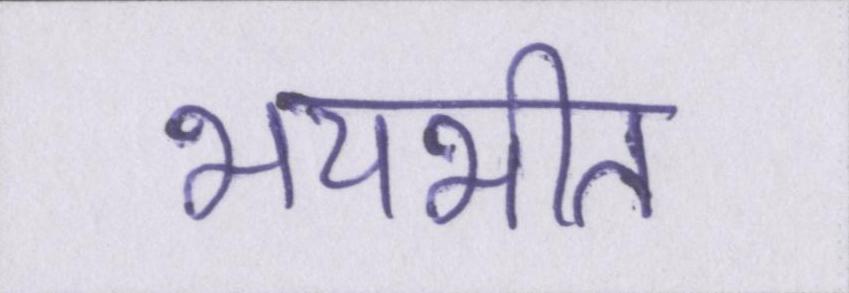 भयभीत